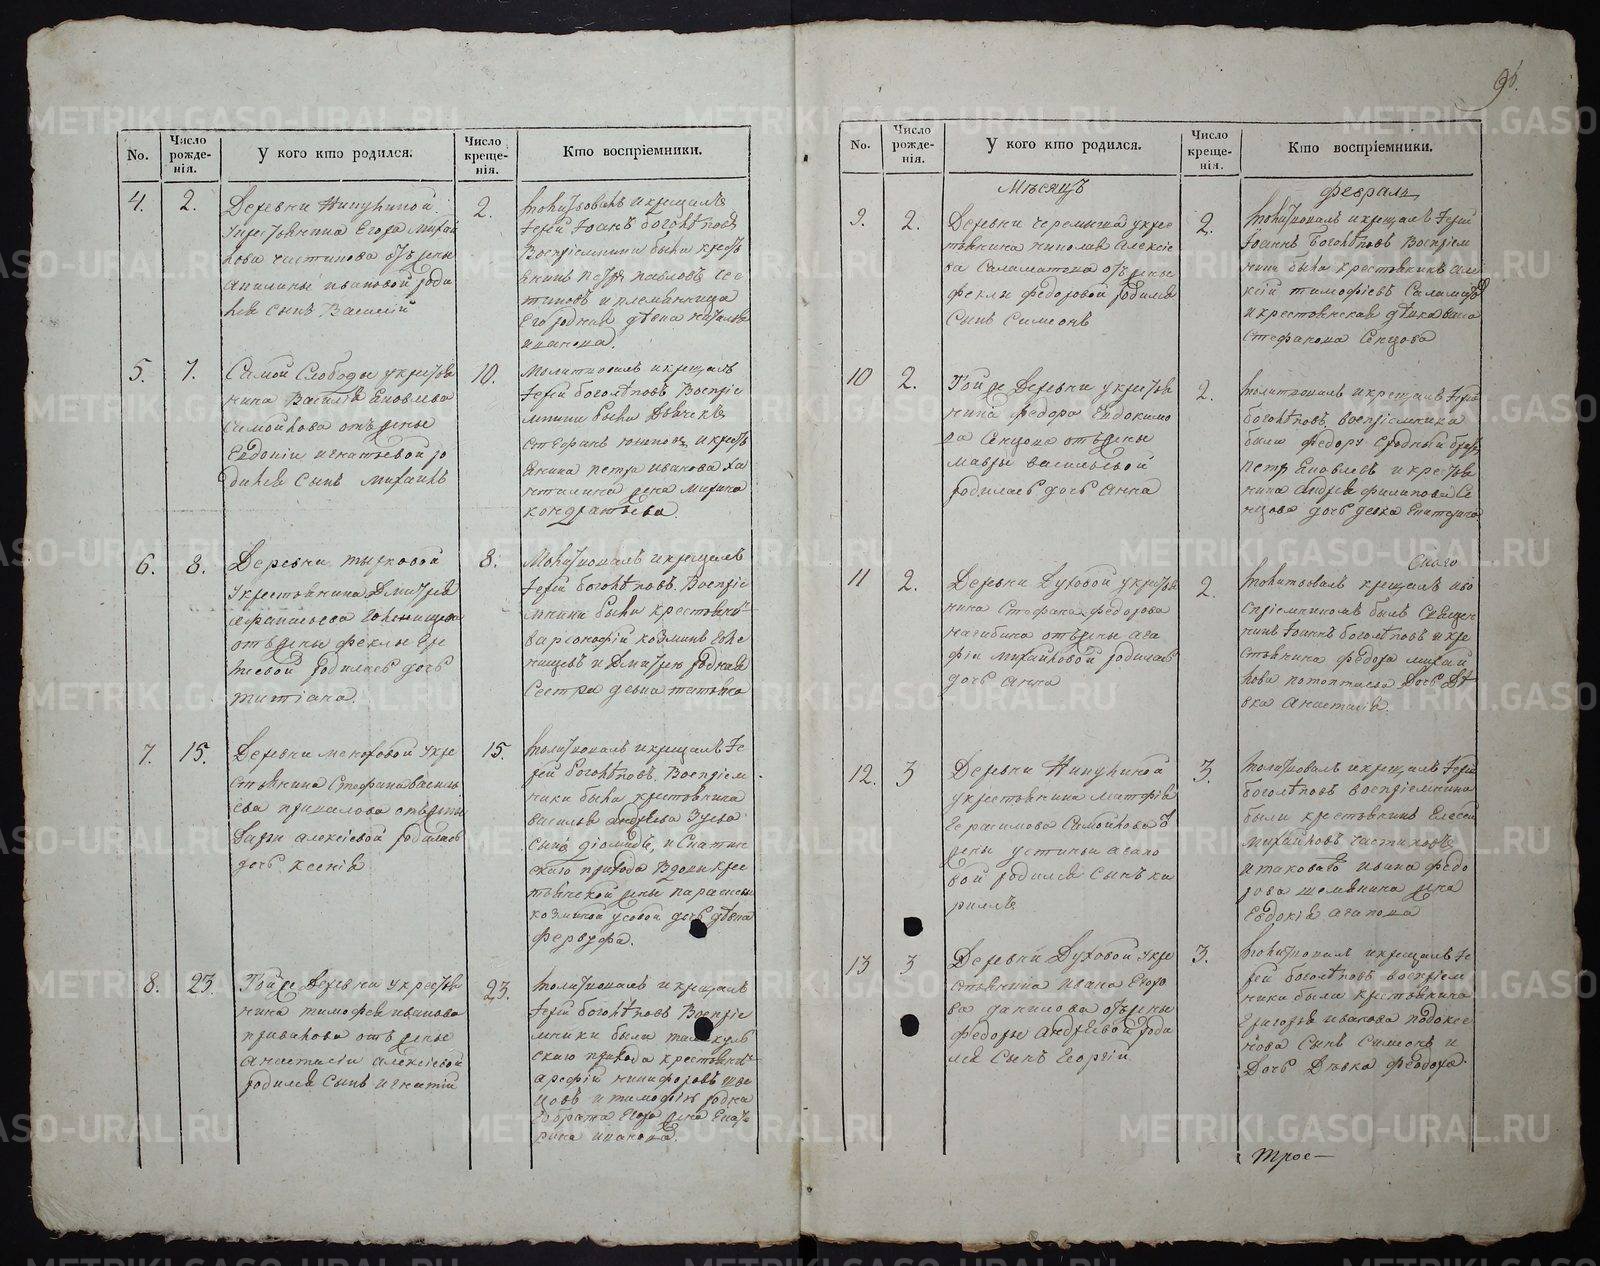 No.
Число рожде-нія.
У кого кто родился.
Число креще-нія.
Кто воспріемники.
4.
2.
Деревни
у крестьянина Егора Михай
лова Частикова отъ жены
Акилины Ивановой роди
лся сынъ Василій
2.
молитвовалъ и крещалъ
Іерей Іоанъ Боголѣповъ
Воспріемники были кресть
янинъ Петръ Павловъ
и племянница
его родная дѣвка Наталья
Иванова.
5.
7.
Самой Слободы у крестья
нина Василья Яковлева
Самойлова отъ жены
Евдокіи Игнатьевой ро
дился сынъ Михаилъ
10.
Молитвовалъ и крещалъ
Іерей Боголѣповъ Воспріе
мники были Дьячекъ
Стефанъ и кресть
янина Петра Иванова
жена Марина
Кондратьева.
6.
8.
Деревни
у крестьянина Дмитрія
Афанасьева Голенищева
отъ жены Феклы Сер
геевой родилась дочь
Татіана.
8.
Молитвовалъ и крещалъ
Іерей Боголѣповъ. Воспріе
мники были крестьянинъ
Варсонофій Козминъ Голе
нищевъ и Дмитрію родная
сестра девка Татьяна
7.
15.
Деревни Меховой у кре
стьянина Стефана Василь
ева Привалова отъ жены
Дарьи Алексіевой родилась
дочь Ксенія
15.
молитвовалъ и крещалъ Іе
рей Боголѣповъ. Воспріем
ники были крестьянина
Василья Андреева Зуева
сынъ Діомидъ, и
скаго прихода вдовы кре
стьянской жены Парасковьи
Козминой Усовой дочь дѣвка
Феврусфа.
8.
23.
Той же Деревни у крестья
нина Тимофея Иванова
Привалова отъ жены
Анастасіи Алексіевой
родился сынъ Игнатій
23.
молитвовалъ и крещалъ
Іерей Боголѣповъ Воспріе
мники были
скаго прихода крестьянинъ
Арефій Никифоровъ Шве
цовъ и Тимофею родна
го брата Егора жена Екате
рина Иванова.
No.
Число рожде-нія.
У кого кто родился.
Число креще-нія.
Кто воспріемники.
Мѣсяцъ
Февраль
9.
2.
Деревни у крес
тьянина Николая Алексіе
ва Саламатова отъ жены
Феклы Федоровой родился
сынъ Симеонъ
2.
молитвовалъ и крещалъ Іерей
Іоаннъ Боголѣповъ Воспріем
ники были крестьянинъ Але
ксій Тимофіевъ Саламатовъ
и крестьянская дѣвка
Стефанова Сенцова
10
2.
Той же Деревни у крестья
нина Федора Евдокимо
ва Сенцова отъ жены
Мавры Васильевой
родилась дочь Анна
2.
молитвовалъ и крещалъ Іерей
Боголѣповъ воспріемники
были Федору сродный братъ
Петръ Яковлевъ и крестья
нина Андрея Филипова Се
нцова дочь девка Екатерина
11
2.
Деревни Духовой у крестья
нина Стефана Федорова
Нагибина отъ жены Ага
фіи Михайловой родилась
дочь Анна
2.
Онаго
молитвовалъ крещалъ иво
спріемникомъ былъ Священ
никъ Іоаннъ Боголѣповъ и кре
стьянина Федора Михай
лова Потоптаева дочь дѣ
вка Анастасія.
12.
3
Деревни
у крестьянина Матфія
Герасимова Самойлова отъ
жены Устиньи Агапо
вой родился сынъ Ки
риллъ
3.
молитвовалъ и крещалъ Іерей
Боголѣповъ воспріемники
были крестьянинъ Елесей
Михайловъ Частиковъ
и таковаго Ивана Федо
рова Шемякина жена
Евдокія Агапова
13
3
Деревни Духовой у кре
стьянина Ивана Егоро
ва Данилова отъ жены
Федоры Андреевой роди
лся сынъ Георгій
3.
молитвовалъ и крещалъ Іе
рей Боголѣповъ воспріем
ники были крестьянина
Григорья Иванова Подоксе
нова сынъ Симеонъ и
дочь дѣвка Феодора.
Трое—